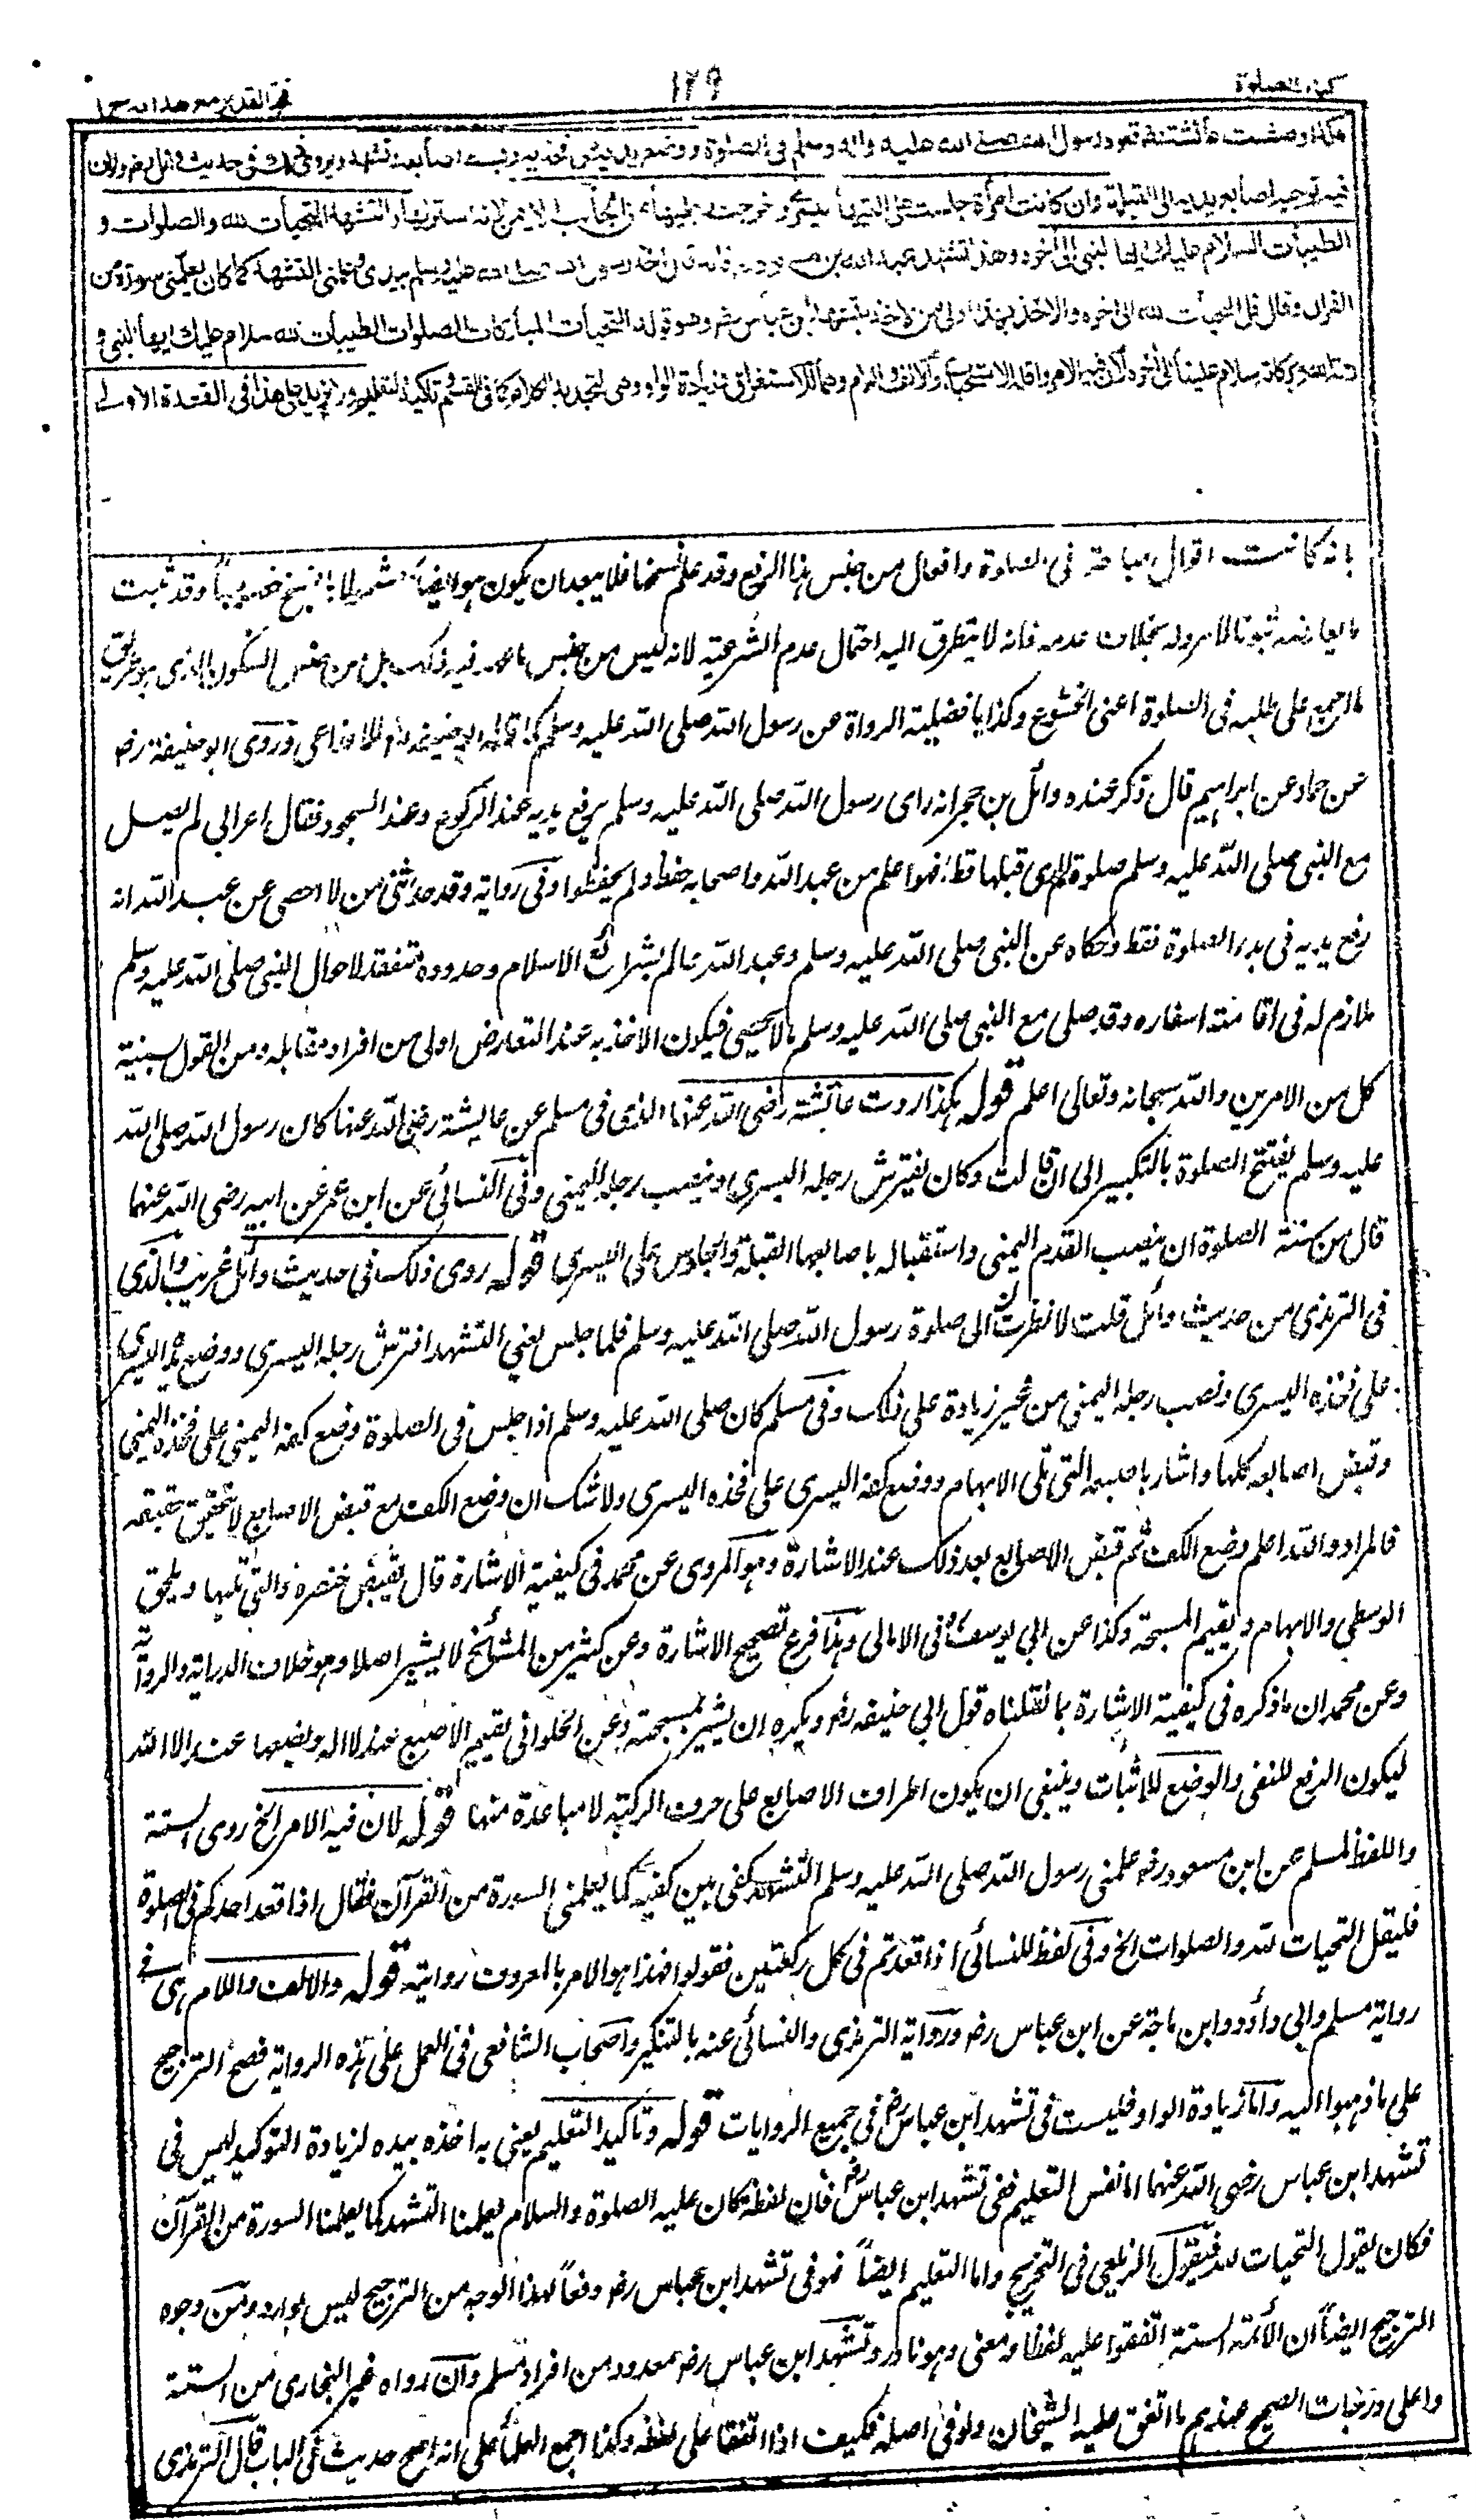 كتاب الصلوة
١٢٩
فتح القدير مع هدايه ج ١
هكذا وصفت عائشة قعود رسول الله صلى الله عليه واله وسلم في الصلوة ووضع يديه على فخذيه وبسط اصابعه وتشهد يروى ذلك في حديث وائل رض ولان
فيه توجيه اصابع يديه الى القبلة وان كانت امرأة جلست على اليتها اليسرى واخرجت رجليها من الجانب الايمن لانه استر لها والتشهد التحيات لله والصلوات و
الطيبات السلام عليك ايها النبي الى اخره وهذا تشهد عبد الله بن مسعود رض فانه قال اخذ رسول الله صلى الله عليه وسلم بيدي وعلمني التشهد كما كان يعلمني سورة من
القران وقال قل التحيات لله الى اخره والاخذ بهذا اولى من الاخذ بتشهد ابن عباس رض وهو قوله التحيات المباركات الصلوات الطيبات لله سلام عليك ايها النبي و
رحمة الله وبركاته سلام علينا الى اخره لان فيه الامر واقله الاستحباب والالف واللام وهما للاستغراق وزيادة الواو وهي لتجديد الكلام كما في القسم وتاكيد التعليم ولا يزيد على هذا في القعدة الاولى
بانه كانت اقوال مباحة في الصلوة وافعال من جنس هذا الرفع وقد علم نسخها فلا يبعد ان يكون هو ايضا مشمولا بالنسخ خصوصا وقد ثبت
ما يعارضه ثبوتا لا مرد له بخلاف عدمه فانه لا يتطرق اليه احتمال عدم الشرعية لانه ليس من جنس ما عهد فيه ذلك بل من جنس السكون الذي هو طريق
ما اجمع على طلبه في الصلوة اعنى الخشوع وكذا بافضلية الرواة عن رسول الله صلى الله عليه وسلم كما قاله ابو حنيفه للاوزاعي وروى ابو حنيفة رض
عن حماد عن ابراهيم قال ذكر عنده وائل بن حجر انه راى رسول الله صلى الله عليه وسلم يرفع يديه عند الركوع وعند السجود فقال اعرابي لم يصل
مع النبي صلى الله عليه وسلم صلوة ارى قبلها قط افهو اعلم من عبد الله واصحابه حفظ ولم يحفظوا وفي رواية وقد حدثني من لا احصى عن عبد الله انه
رفع يديه في بدء الصلوة فقط وحكاه عن النبي صلى الله عليه وسلم وعبد الله عالم بشرائع الاسلام وحدوده متفقد لاحوال النبي صلى الله عليه وسلم
ملازم له في اقامته واسفاره وقد صلى مع النبي صلى الله عليه وسلم ما لا يحصى فيكون الاخذ به عند التعارض اولى من افراد مقابله ومن القول بسنية
كل من الامرين والله سبحانه وتعالى اعلم قوله هكذا روت عائشة رضى الله عنها الذى في مسلم عن عايشة رضى الله عنها كان رسول الله صلى الله
عليه وسلم يفتتح الصلوة بالتكبير الى ان قالت وكان يفترش رجله اليسرى وينصب رجله اليمنى وفي النسائي عن ابن عمر عن ابيه رضى الله عنهما
قال من سنة الصلوة ان ينصب القدم اليمنى واستقباله باصابعها القبلة والجلوس على اليسرى قوله روى ذلك في حديث وائل غريب والذى
في الترمذي من حديث وائل قلت لانظرن الى صلوة رسول الله صلى الله عليه وسلم فلما جلس يعني التشهد افترش رجله اليسرى ووضع يده اليسرى
على فخذه اليسرى ونصب رجله اليمنى من غير زيادة على ذلك وفي مسلم كان صلى الله عليه وسلم اذا جلس في الصلوة وضع كفه اليمنى على فخذه اليمنى
وقبض اصابعه كلها واشار باصبعه التى تلى الابهام ووضع كفه اليسرى على فخذه اليسرى ولا شك ان وضع الكف مع قبض الاصابع لا يتحقق حقيقة
فالمراد والله اعلم وضع الكف ثم قبض الاصابع بعد ذلك عند الاشارة وهو المروى عن محمد في كيفية الاشارة قال يقبض خنصره والتى تليها ويحلق
الوسطى والابهام ويقيم المسبحة وكذا عن ابي يوسف في الامالى وهذا فرع تصحيح الاشارة وعن كثير من المشائخ لا يشير اصلا وهو خلاف الدراية والرواية
وعن محمد ان ما ذكره في كيفية الاشارة بما نقلناه قول ابي حنيفه رض ويكره ان يشير بمسبحته وعن الحلواني يقيم الاصبع عند لا اله ويضعها عند الا الله
ليكون الرفع للنفى والوضع للاثبات وينبغى ان يكون اطراف الاصابع على حرف الركبة لا مباعدة منها قوله لان فيه الامر الخ روى الستة
واللفظ لمسلم عن ابن مسعود رض علمنى رسول الله صلى الله عليه وسلم التشهد كفى بين كفيه كما يعلمنى السورة من القرآن فقال اذا قعد احدكم في الصلوة
فليقل التحيات لله والصلوات الخ وفي لفظ للنسائي اذا قعدتم في كل ركعتين فقولوا فهذا هو الامر بالمعروف رواية قوله والالف واللام هى في
رواية مسلم وابي داؤد وابن ماجة عن ابن عباس رض ورواية الترمذي والنسائي عنه بالتنكير واصحاب الشافعي في العمل على هذه الرواية فصح الترجيح
على ما ذهبوا اليه واما زيادة الواو فليست في تشهد ابن عباس رض في جميع الروايات قوله وتاكيد التعليم يعنى به اخذه بيده لزيادة التوكيد ليس في
تشهد ابن عباس رضى الله عنهما اما نفس التعليم ففى تشهد ابن عباس رض فان لفظه كان عليه الصلوة والسلام يعلمنا التشهد كما يعلمنا السورة من القرآن
فكان يقول التحيات لله فيقول الزيلعي في التخريج واما التعليم ايضاً فهو في تشهد ابن عباس رض دفعاً لهذا الوجه من الترجيح ليس بوارد ومن وجوه
الترجيح ايضاً ان الأئمة الستة اتفقوا عليه لفظا ومعنى وهو نادر وتشهد ابن عباس رض معدود من افراد مسلم وان رواه غير البخارى من الستة
واعلى درجات الصحيح عندهم ما اتفق عليه الشيخان ولو في اصله فكيف اذا اتفقا على لفظه وكذا اجمع العلماء على انه اصح حديث في الباب قال الترمذى